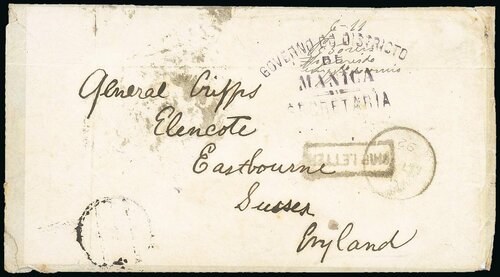 GOVERNO DO DISTRICTO
DE
MANICA
SECRETARIA
General Cripps
Elencote
Eastbourne
SHIP LETTER
Sussex
England